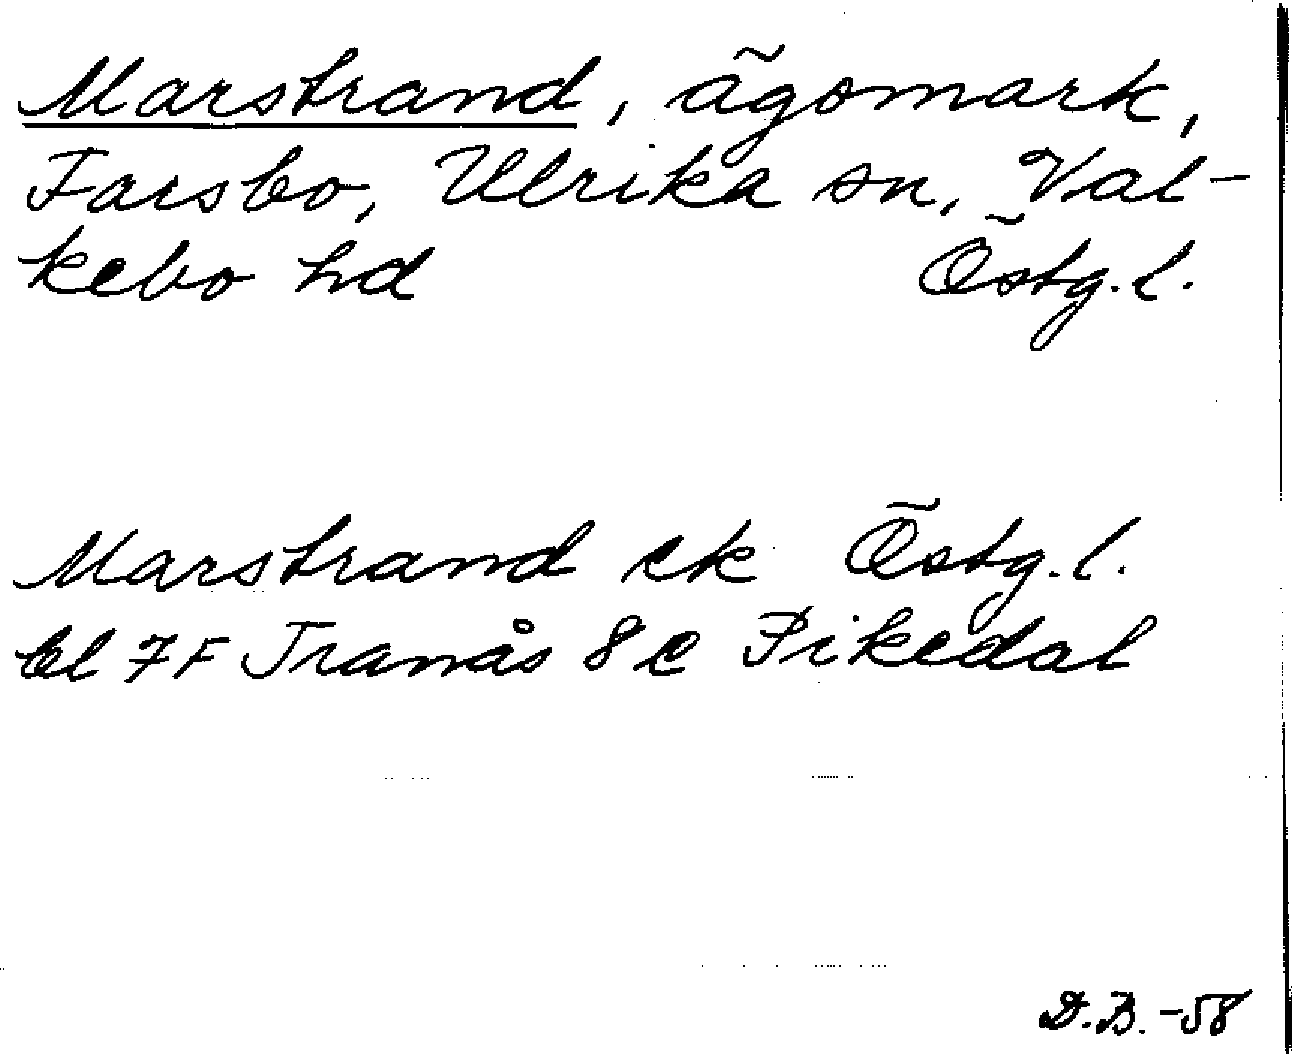 Marstrand, ägomark,
Farsbo, Ulrika sn, Val-
kebo hd Östg.l.
Marstrand ek Östg.l.
bl 7F Tranås 8e Pikedal
D.B. -58